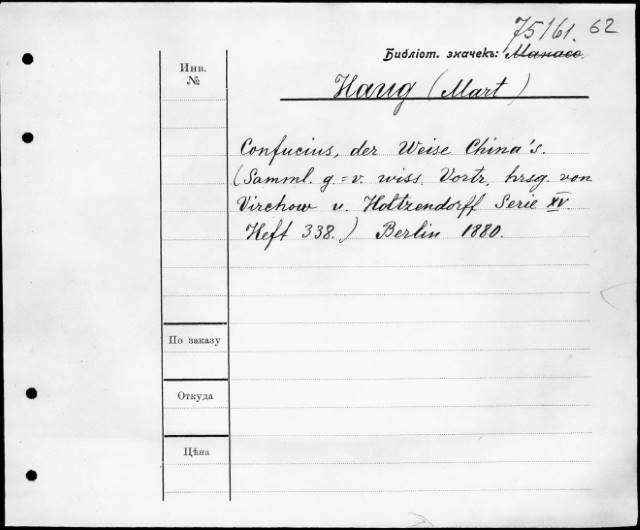 75161. 62
Библіот. значекъ:
Инв.
№
Haug (Mart)
Confucius, der Weise China's.
(Samml. g.=v. wiss. Vortr. hrsg. von
Virchow u. Holtzendorff Serie XV.
Heft 338.) Berlin 1880.
По заказу
Откуда
Цѣна